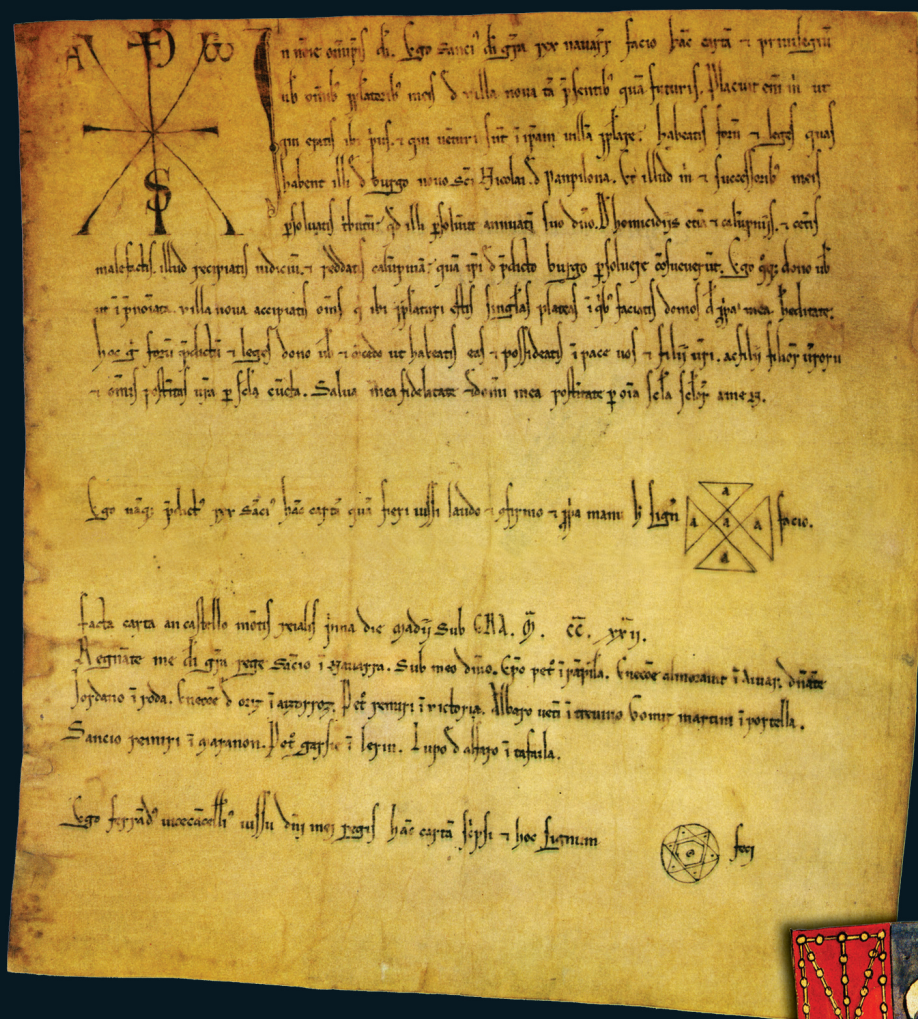 A P ω
S
In nōie oīnipōtis dī. Ego sanciꝰ dī grā rex nauarr facio hāc cartā ⁊ priuilegiū
uob omīb pplatorib meis d villa noua tā psentib quā futuris. Placuit enī m ut
qui eratis ibi priꝰ. ⁊ qui uēturi sūt ī ipam uillā pplare. habeatis forū ⁊ leges quas
habent illi d burgo nouo scī Nicolai d Panpilona. Et illud m ⁊ successorib meis
psoluatis tbutū qd illi psoluūt annuatī suo dno. D homicidijs etiā ⁊ calūpnijs. ⁊ cetis
malefactis. illud recipiatis iudiciū. ⁊ reddatis calūpniā quā ipi d pdicto burgo psoluere cōsueuerūt. Ego qꝫ dono uob
ut ī pnoīata villa noua accipiatis oīns q ibi pplaturi estis singlas plateas ī qb faciatis domos d ppa mea hēditate.
hoc g forū pdictū ⁊ leges dono uob ⁊ ōcedo ut habeatis eas ⁊ possideatis ī pace uos ⁊ filij uri. ac filij filiorū uroru
⁊ omīs posttitas ura p scla cūcta. Salua mea fidelitate ⁊ domī mea posttitate p oīa scla sclorꝝ amen.
Ego nāqꝫ pdictꝰ rex sāciꝰ hāc cartā quā fieri iussi laudo ⁊ ɔfirmo ⁊ ppa manu h signū
A A A A A
facio.
facta carta an castello mōtis regalis prima die madij Sub ERA. M̄. CC̄. xx ij.
Regnāte me dī grā rege Sācio ī Nauarra. Sub meo dnio. Epo pet ī pāpila. Enecōe almorauit ī Aiuar. dnāte
Iordano ī roda. Enecōe d oriz ī Pet remiri ī victoria. Albaro ueti ī treuino Gomiz martini ī portella.
Sancio remiri ī maranon. Pet garsie ī lerin. Lupo d alfaro ī tafaila.
Ego ferrādꝰ uicecācellꝰ iussu dnī mei regis hāc cartā scpsi ⁊ hoc signum
feci